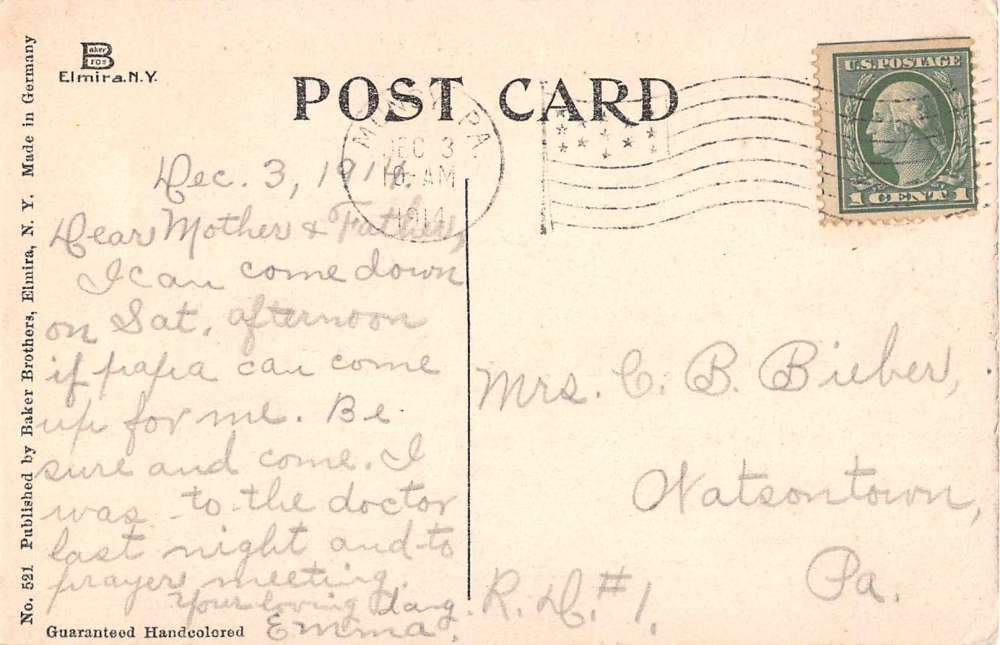 Baker Bros
Elmira. N.Y.
POST CARD
U.S. POSTAGE
1 CENT 1
PA.
DEC 3
AM
1914
Dec. 3, 1914.
Dear Mother & Father,
I can come down
on Sat. afternoon
if papa can come
up for me. Be
sure and come. I
was to the doctor
last night and to
prayer meeting.
Your loving daug.
Emma.
Mrs. C. B. Bieber,
Watsontown,
Pa.
R. D. #1.
No. 521 Published by Baker Brothers, Elmira, N. Y. Made in Germany
Guaranteed Handcolored